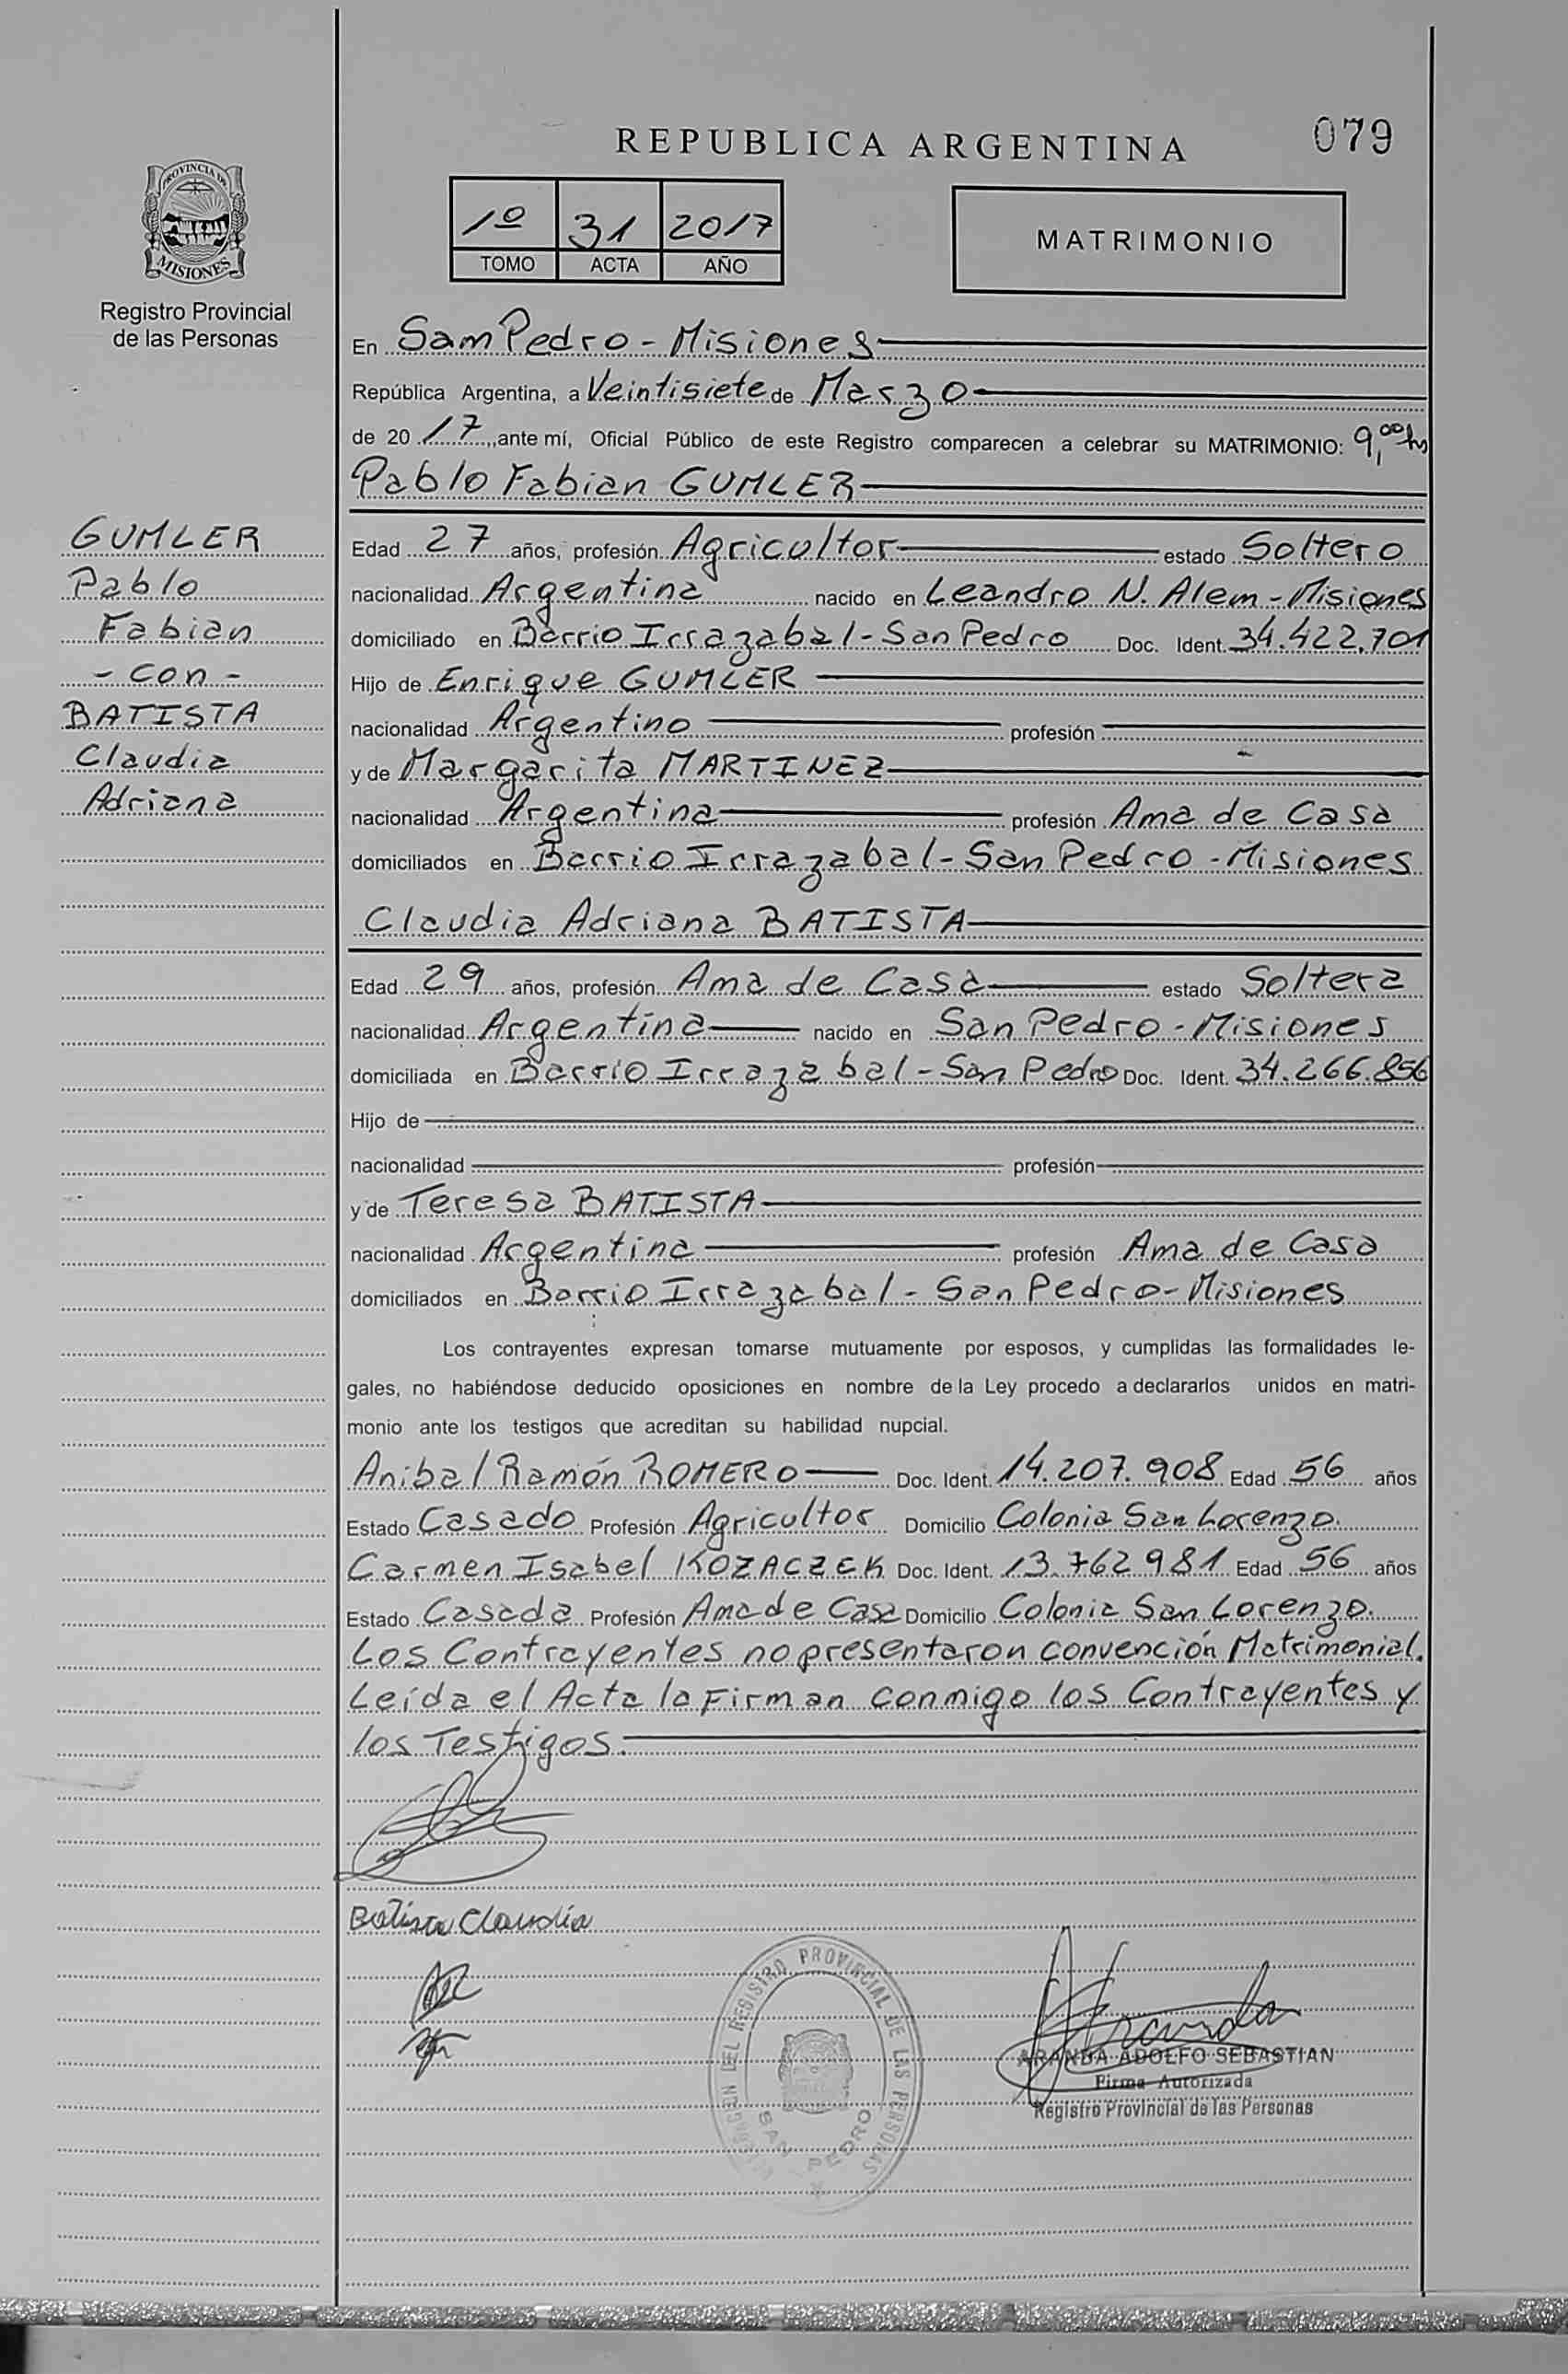 REPUBLICA ARGENTINA
079
PROVINCIA DE
MISIONES
Registro Provincial
de las Personas
1º 31 2017
TOMO ACTA AÑO
MATRIMONIO
En San Pedro - Misiones
República Argentina, a Veintisiete de Marzo
de 20 17, ante mí, Oficial Público de este Registro comparecen a celebrar su MATRIMONIO: 9,00 hs
Pablo Fabian GUMLER
GUMLER
Pablo
Fabian
- Con -
BATISTA
Claudia
Adriana
Edad 27 años, profesión Agricultor estado Soltero
nacionalidad Argentina nacido en Leandro N. Alem - Misiones
domiciliado en Barrio Irrazabal - San Pedro Doc. Ident. 34.422.701
Hijo de Enrique GUMLER
nacionalidad Argentino profesión
y de Margarita MARTINEZ
nacionalidad Argentina profesión Ama de Casa
domiciliados en Barrio Irrazabal - San Pedro - Misiones
Claudia Adriana BATISTA
Edad 29 años, profesión Ama de Casa estado Soltera
nacionalidad Argentina nacido en San Pedro - Misiones
domiciliada en Barrio Irrazabal - San Pedro Doc. Ident. 34.266.856
Hijo de
nacionalidad profesión
y de Teresa BATISTA
nacionalidad Argentina profesión Ama de Casa
domiciliados en Barrio Irrazabal - San Pedro - Misiones
Los contrayentes expresan tomarse mutuamente por esposos, y cumplidas las formalidades le-
gales, no habiéndose deducido oposiciones en nombre de la Ley procedo a declararlos unidos en matri-
monio ante los testigos que acreditan su habilidad nupcial.
Anibal Ramón ROMERO Doc. Ident. 14.207.908 Edad 56 años
Estado Casado Profesión Agricultor Domicilio Colonia San Lorenzo.
Carmen Isabel KOZACZEK Doc. Ident. 13.762.981 Edad 56 años
Estado Casada Profesión Ama de Casa Domicilio Colonia San Lorenzo.
Los Contrayentes no presentaron convención Matrimonial.
Leída el Acta la Firman conmigo los Contrayentes y
los Testigos.
Batista Claudia
DEL REGISTRO PROVINCIAL DE LAS PERSONAS
SAN PEDRO
Aranda
ARANDA ADOLFO SEBASTIAN
Firma Autorizada
Registro Provincial de las Personas